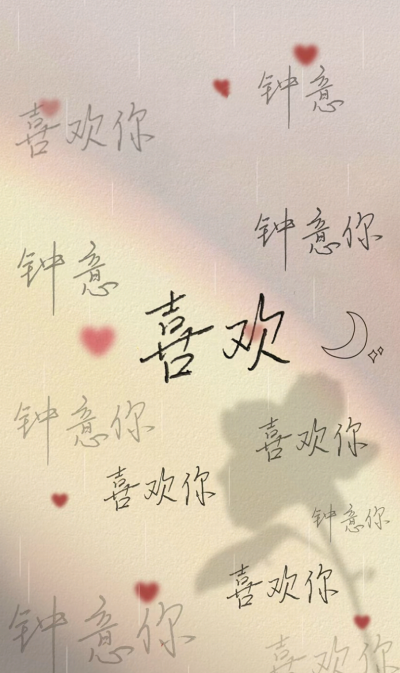 钟意
喜欢你
钟意你
钟意
喜欢
钟意你
喜欢你
喜欢你
钟意你
喜欢你
钟意你
喜欢你